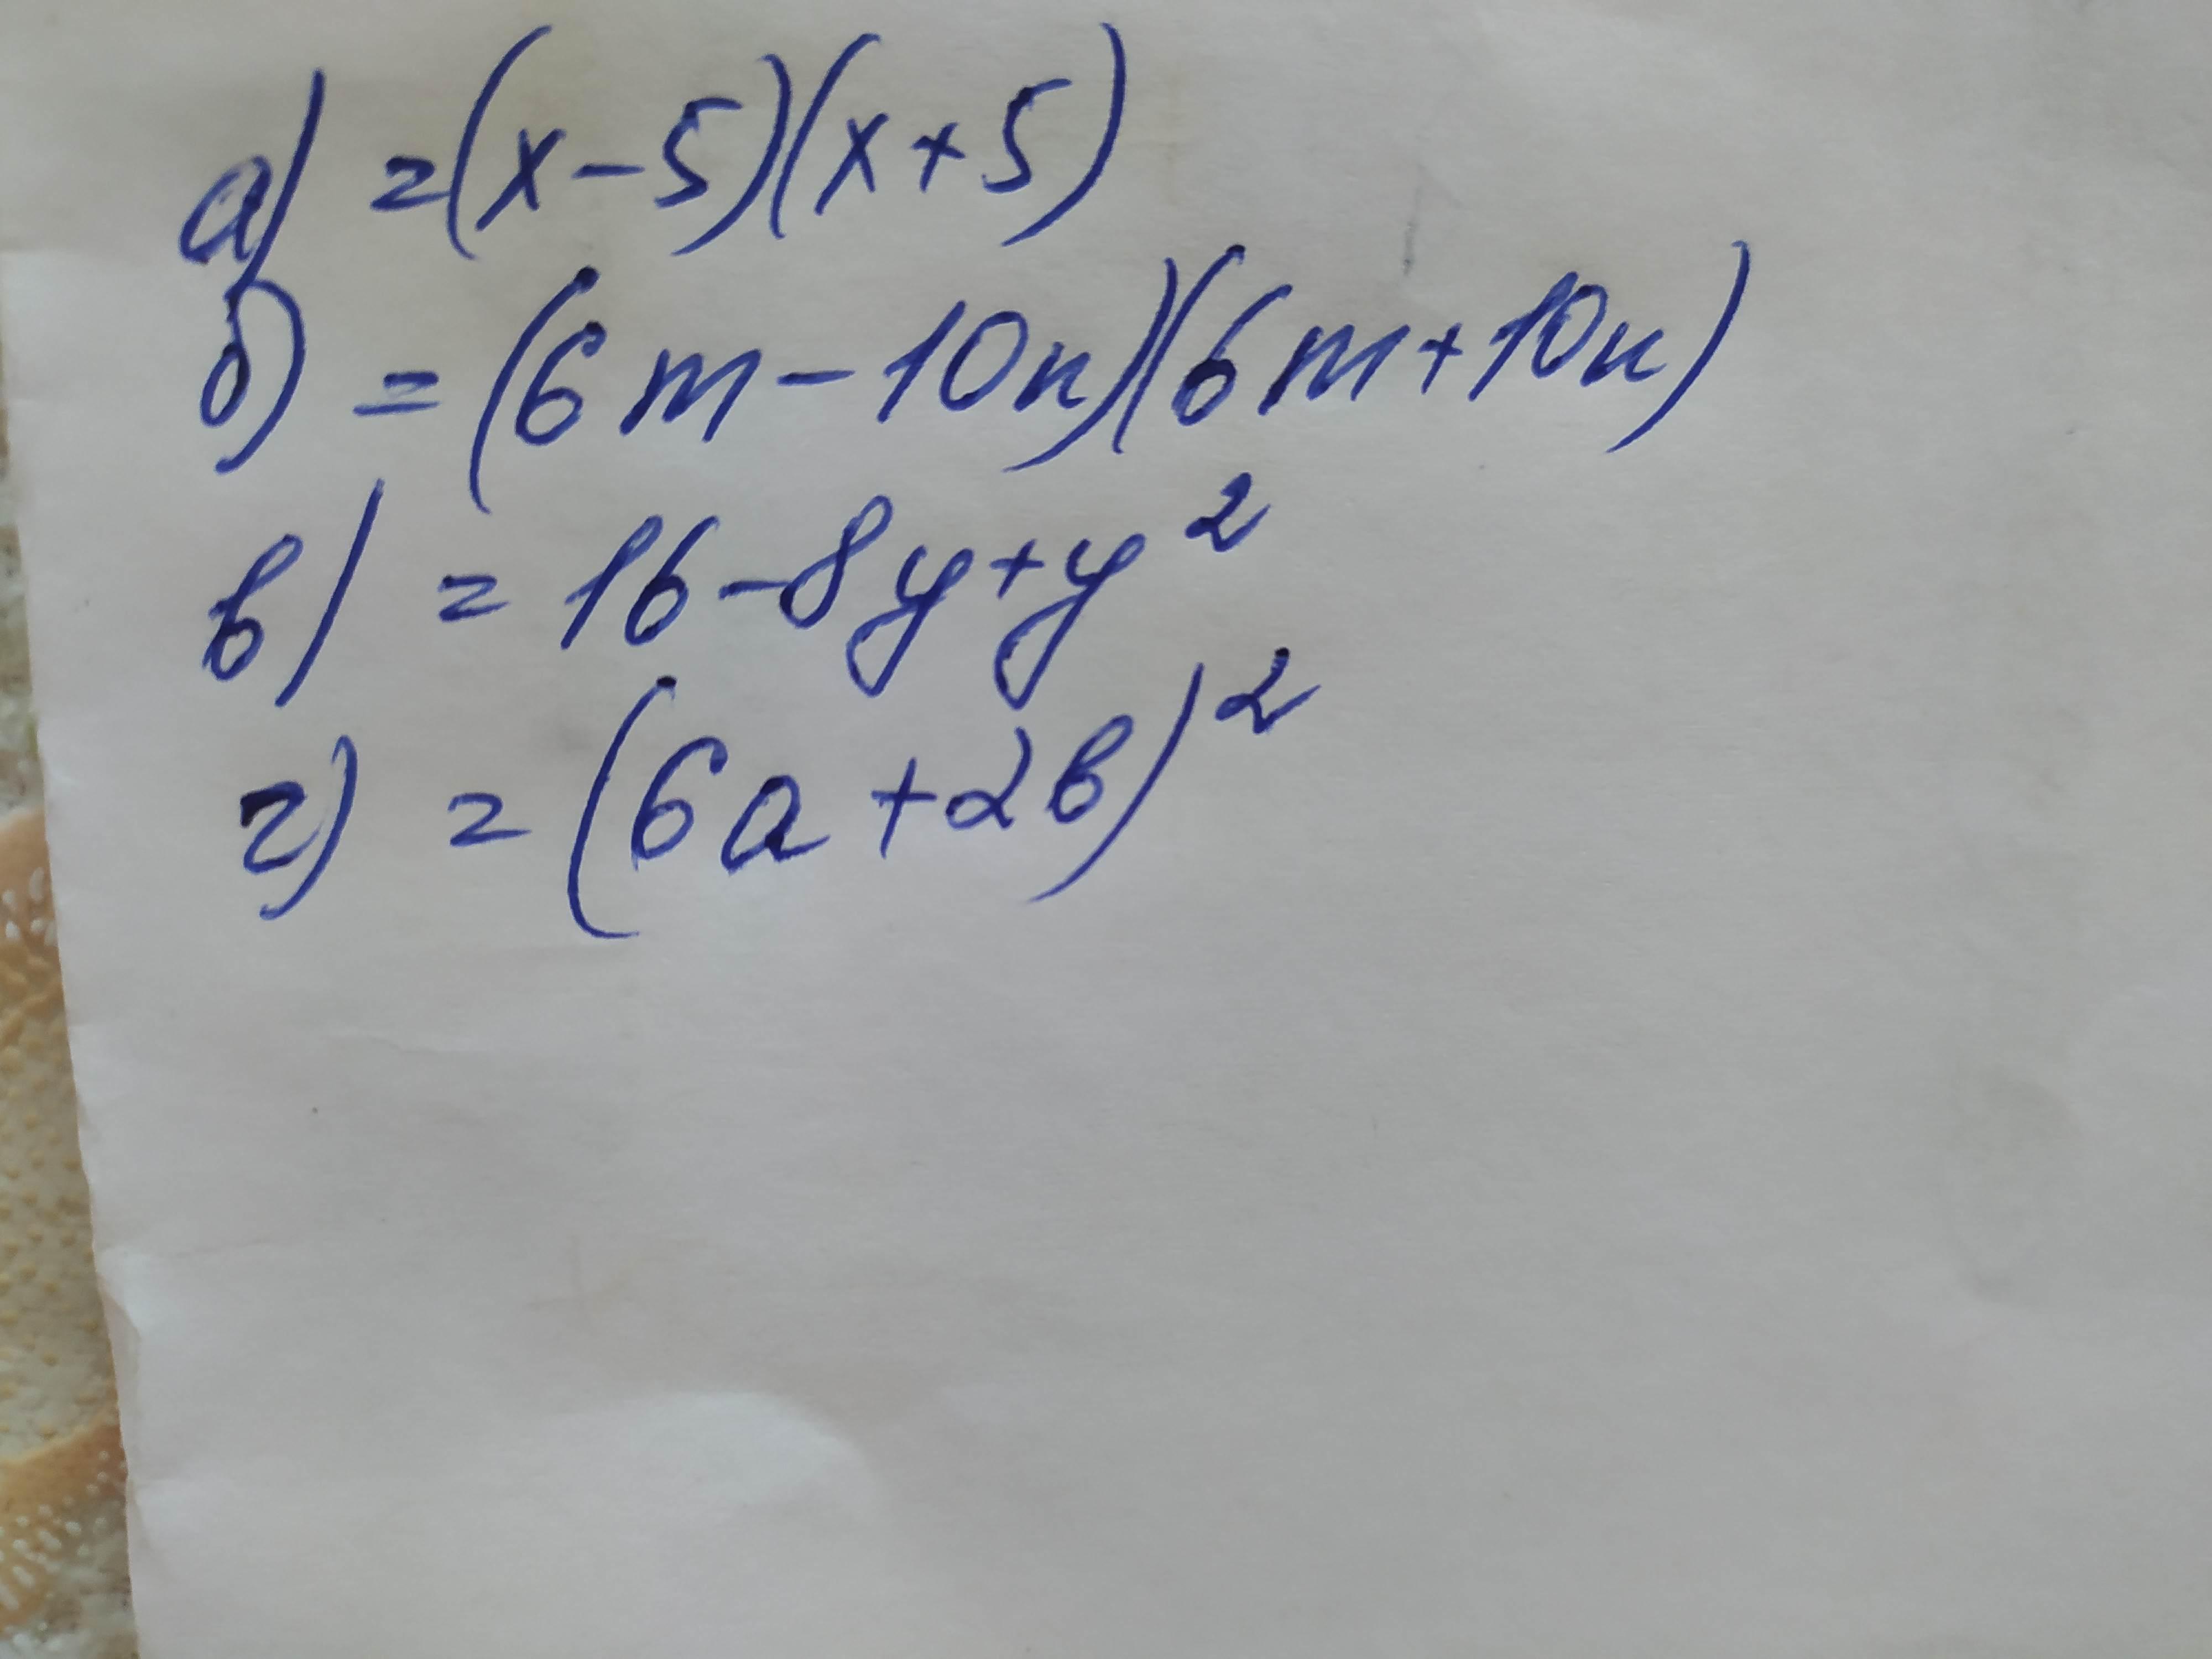 а) =(x-5)(x+5)
б) =(6m-10n)(6m+10n)
в) =16-8y+y²
г) =(6a+2b)²